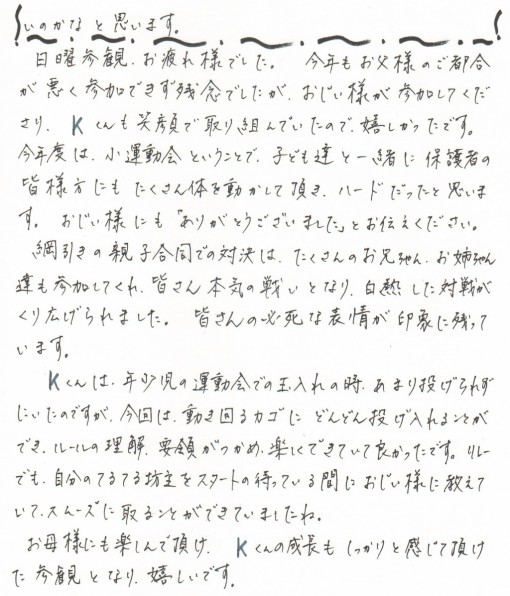 いのかなと思います。
日曜参観、お疲れ様でした。 今年もお父様のご都合
が悪く参加できず残念でしたが、おじい様が参加してくだ
さり、Kくんも笑顔で取り組んでいたので、嬉しかったです。
今年度は、小運動会ということで、子ども達と一緒に保護者の
皆様方にもたくさん体を動かして頂き、ハードだったと思いま
す。 おじい様にも「ありがとうございました」とお伝えください。
綱引きの親子合同での対決は、たくさんのお兄ちゃん、お姉ちゃん
達も参加してくれ、皆さん本気の戦いとなり、白熱した対戦が
くり広げられました。 皆さんの必死な表情が印象に残って
います。
Kくんは、年少児の運動会での玉入れの時、あまり投げられず
にいたのですが、今回は、動き回るカゴにどんどん投げ入れることが
でき、ルールの理解、要領がつかめ、楽しくできていて良かったです。リレー
でも、自分のてるてる坊主をスタートの待っている間におじい様に教えて
いて、スムーズに取ることができていましたね。
お母様にも楽しんで頂け、Kくんの成長もしっかりと感じて頂け
た参観となり、嬉しいです。